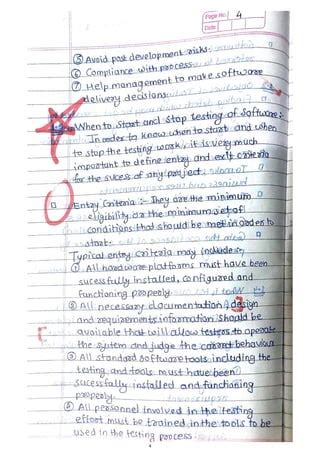 Page No. 4
Date
⑤ Avoid post development risks.
⑥ Compliance with process
⑦ Help management to make software
delivery decisions
When to start and stop testing of software:-
In order to know when to start and when
to stop the testing work, it is very much
important to define entry and exit criteria
for the sucess of any project.
Entry Criteria :- They are the minimum
eligibility or the minimum set of
conditions that should be met in order to
start.
Typical entry criteria may include:
① All hardware platforms must have been
sucessfully installed, configured and
functioning properly.
② All necessary documentation, design
and requirements information should be
available that will allow testers to operate
the system and judge the correct behaviour
③ All standard software tools including the
testing tools must have been
sucessfully installed and functioning
properly.
④ All personnel involved in the testing
effort must be trained in the tools to be
used in the testing process.